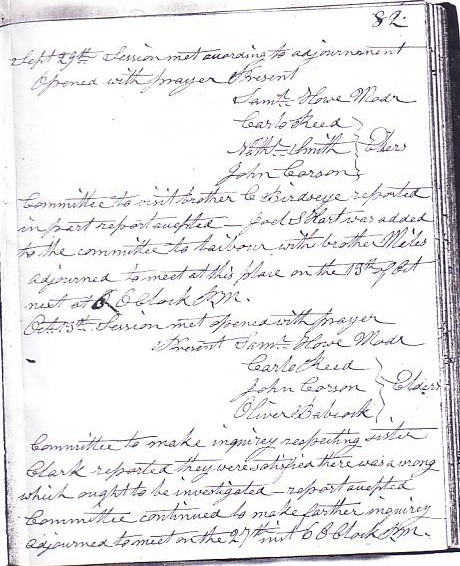 82.
Sept 29th Session met acording to adjournment
Opened with prayer Present
Saml. Howe Modr
Carlo Reed
Nathl. Smith } Elders
John Corson
Committee to visit brother C Birdseye reported
in part report acepted - Joel S Hart was added
to the committee to laibour with brother Miles
adjourned to meet at this place on the 13th of Oct
next at 6 O Clock P.M.
Oct 13th Session met opened with prayer
Present Saml. Howe Modr
Carlo Reed
John Corson } Elders
Oliver Babcock
Committee to make inquirey respecting sister
Clark reported they were satisfied there was a wrong
which ought to be investigated - report acepted
Committee continued to make farther inquirey
adjourned to meet on the 27th inst 6 O Clock P.M.